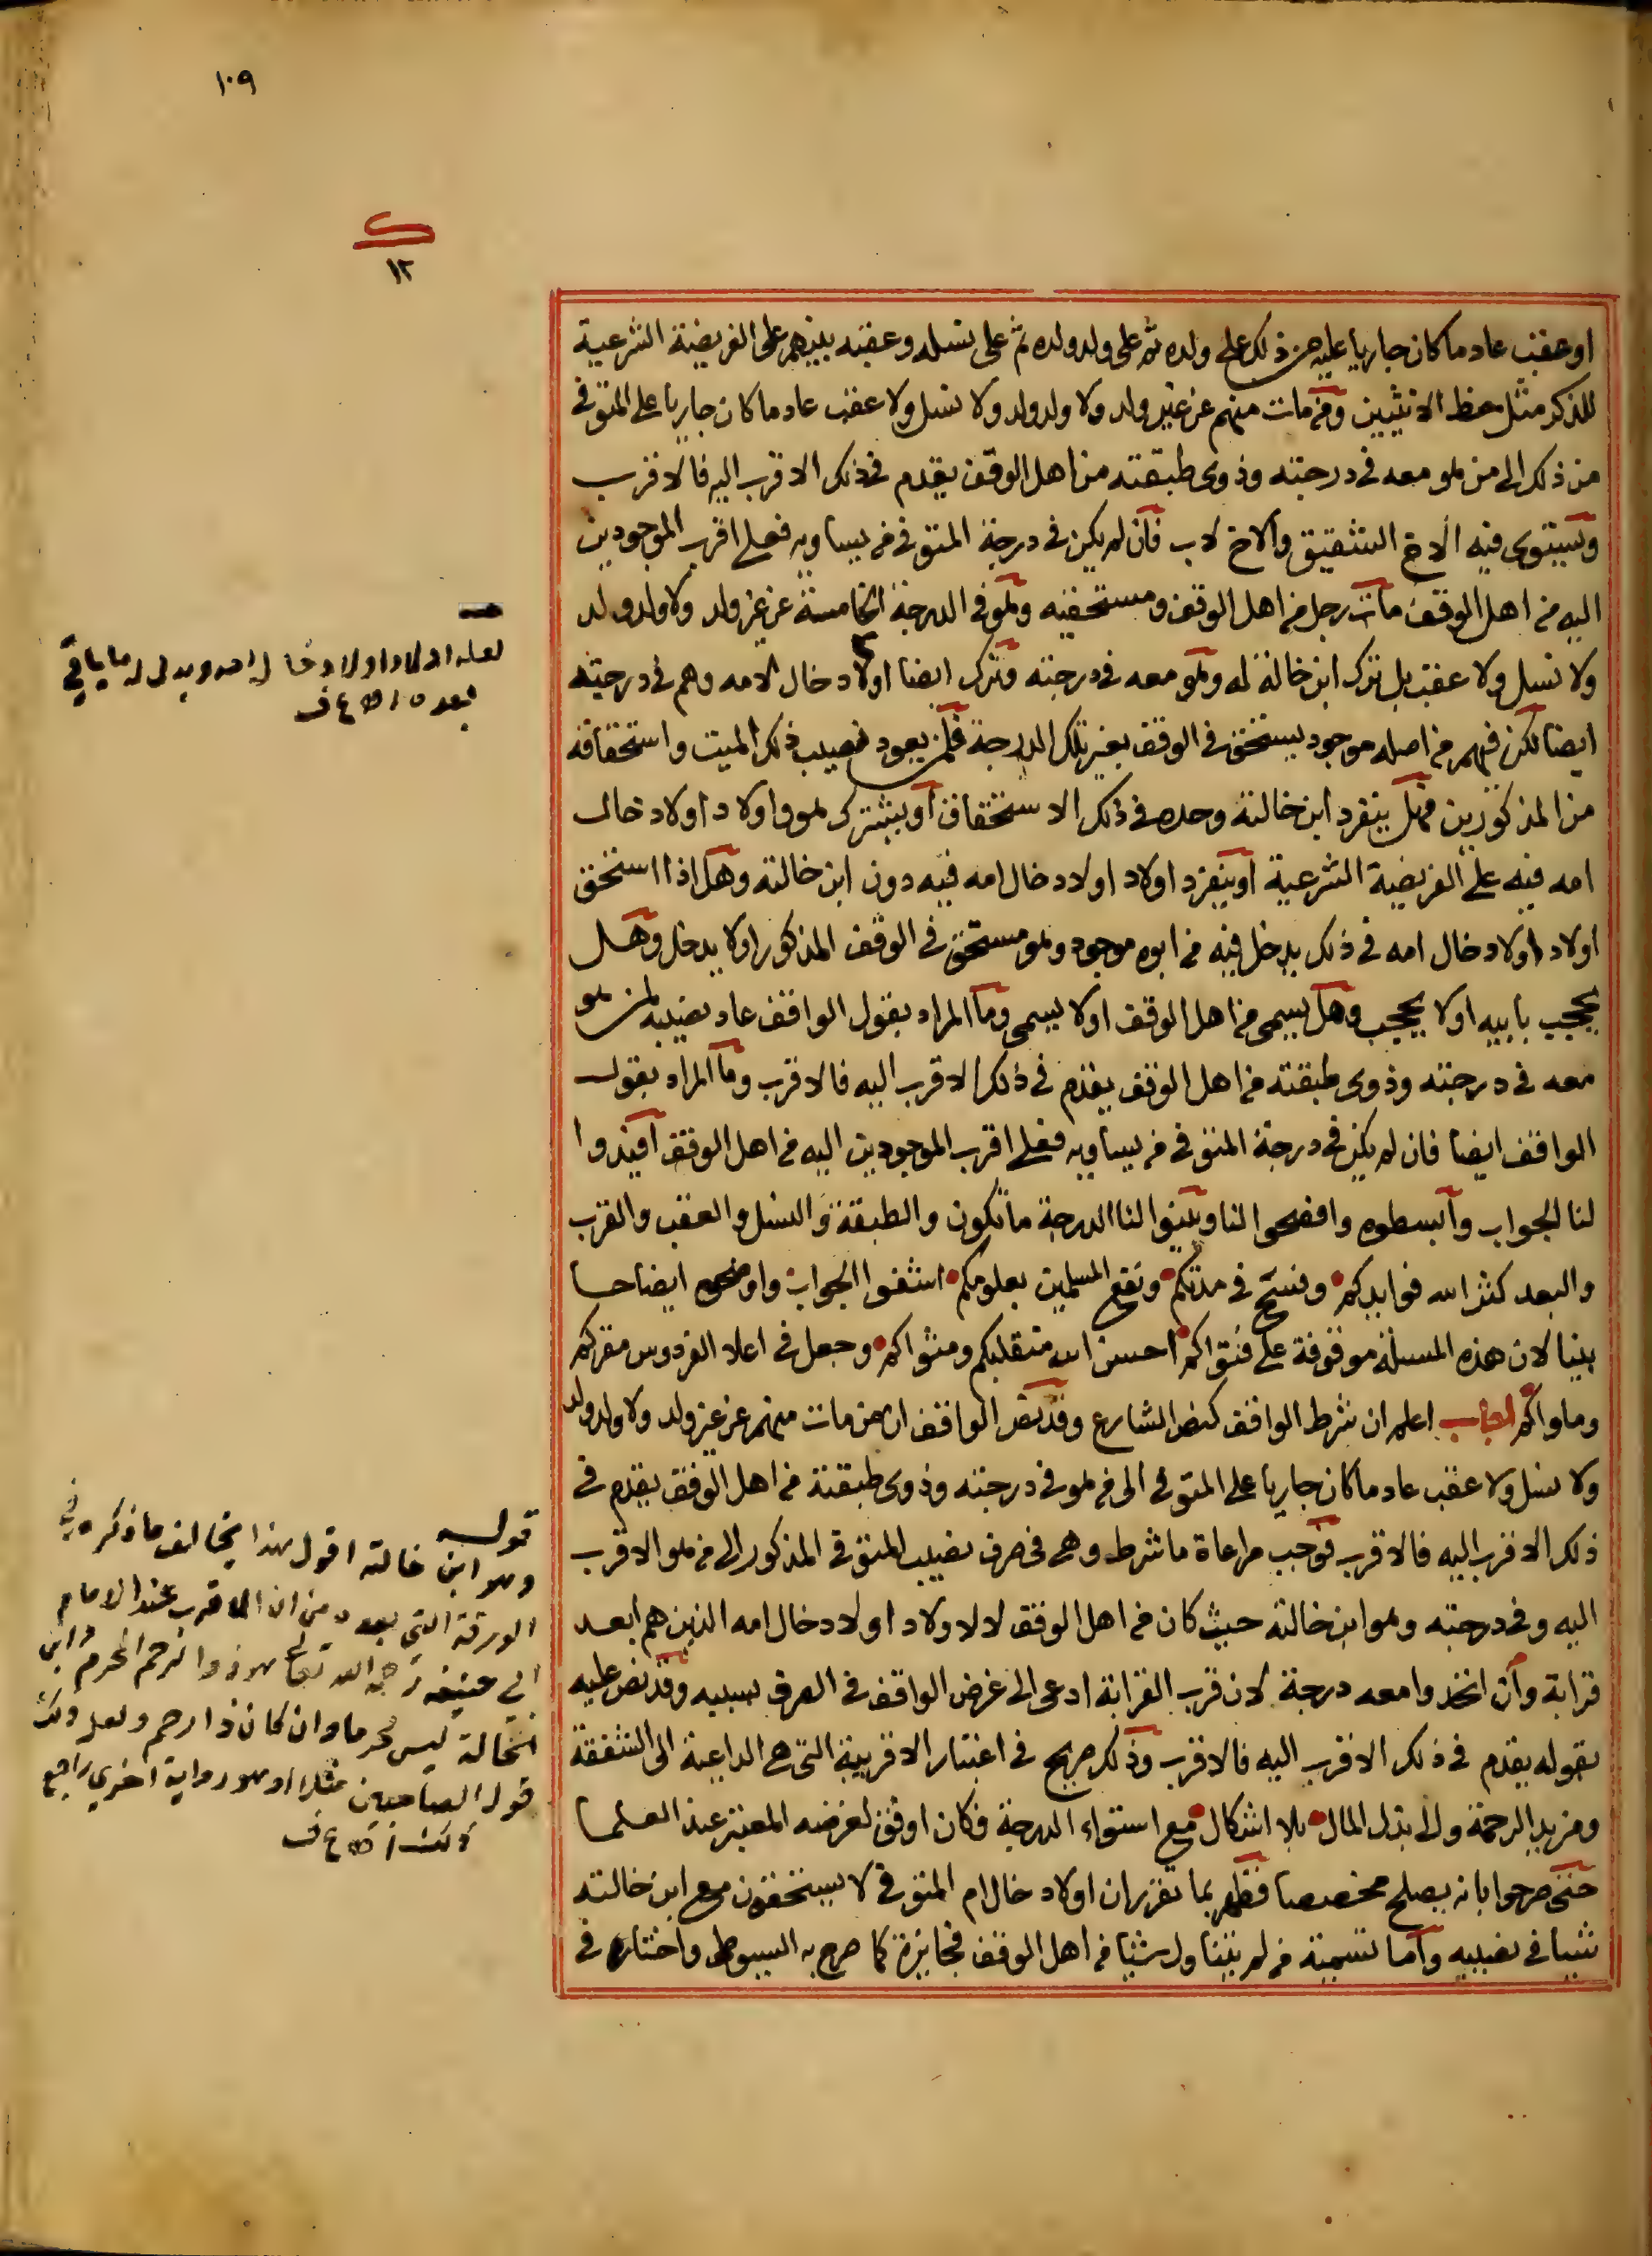 ١٠٩
ك
١٢
او عقب عاد ما كان جاريا عليه من ذلك على ولده ثم على ولد ولده ثم على نسله وعقبه بينهم على الفريضة الشرعية
للذكر مثل حظ الانثيين ومن مات منهم عن غير ولد ولا ولد ولد ولا نسل ولا عقب عاد ما كان جاريا على المتوفى
من ذلك الى من هو معه في درجته وذوى طبقته من اهل الوقف يقدم في ذلك الاقرب اليه فالاقرب
ويستوى فيه الاخ الشقيق والاخ لاب فان لم يكن في درجة المتوفى من يساويه فعلى اقرب الموجودين
اليه من اهل الوقف مات رجل من اهل الوقف ومستحقيه وهو في الدرجة الخامسة عن غير ولد ولا ولد ولد
ولا نسل ولا عقب بل ترك ابن خالة له وهو معه في درجته وترك ايضا اولاد خال لامه وهم في درجته
ايضا لكن فيهم من اصله موجود يستحق في الوقف بغير تلك الدرجة فلمن يعود نصيب ذلك الميت واستحقاقه
من المذكورين فهل ينفرد ابن خالته وحده في ذلك الاستحقاق او يشترك هو واولاد اولاد خال
امه فيه على الفريضة الشرعية او ينفرد اولاد اولاد خال امه فيه دون ابن خالته وهل اذا استحق
اولاد اولاد خال امه في ذلك يدخل فيه من ابوه موجود وهو مستحق في الوقف المذكور او لا يدخل وهل
يحجب بابيه او لا يحجب وهل يسمى من اهل الوقف او لا يسمى وما المراد بقول الواقف عاد نصيبه لمن هو
معه في درجته وذوى طبقته من اهل الوقف يقدم في ذلك الاقرب اليه فالاقرب وما المراد بقول
الواقف ايضا فان لم يكن في درجة المتوفى من يساويه فعلى اقرب الموجودين اليه من اهل الوقف افيدوا
لنا الجواب وابسطوه وافصحوا لنا وبينوا لنا الدرجة ما تكون والطبقة والنسل والعقب والقرب
والبعد كثر الله فوايدكم وفسح في مدتكم ونفع المسلمين بعلومكم اشفوا الجواب واوضحوه ايضاحا
بينا لان هذه المسئلة موقوفة على فتواكم احسن الله متقلبكم ومثواكم وجعل في اعلا الفردوس مقركم
وماواكم اجاب اعلم ان شرط الواقف كنص الشارع وقد نص الواقف ان من مات منهم عن غير ولد ولا ولد ولد
ولا نسل ولا عقب عاد ما كان جاريا على المتوفى الى من هو في درجته وذوى طبقته من اهل الوقف يقدم في
ذلك الاقرب اليه فالاقرب فوجب مراعاة ما شرط وهى في صرف نصيب المتوفى المذكور الى من هو الاقرب
اليه وفي درجته وهو ابن خالته حيث كان من اهل الوقف لا لاولاد اولاد خال امه الذين هم ابعد
قرابة وان اتحدوا معه درجة لان قرب القرابة ادعى الى غرض الواقف في الصرف بسببه وقد نص عليه
بقوله يقدم في ذلك الاقرب اليه فالاقرب وذلك صريح في اعتبار الاقربية التى هى الداعية الى الشفقة
ومزيد الرحمة والى بذل المال بلا اشكال مع استواء الدرجة فكان اوفق لغرضه المعتبر عند العلما
حتى صرحوا بانه يصلح مخصصا فظهر بما تقرر ان اولاد خال ام المتوفى لا يستحقون مع ابن خالته
شيا في نصيبه واما تسمية من لم يتناول شيا من اهل الوقف فجايزة كما صرح به السيوطى واختاره في
لعله اولاد اولاد خال لامه ويدل له ما ياتى
بعد
قوله
وهو ابن خالته اقول هذا يخالف ما ذكره في
الورقة التي بعد من ان الاقرب عند الامام
ابي حنيفة رحمه الله تعالى هو ذو الرحم المحرم وابن
الخالة ليس محرما وان كان ذا رحم ولعل ذلك
قول الصاحبين مثلا او هو رواية اخرى راجع
ذلك